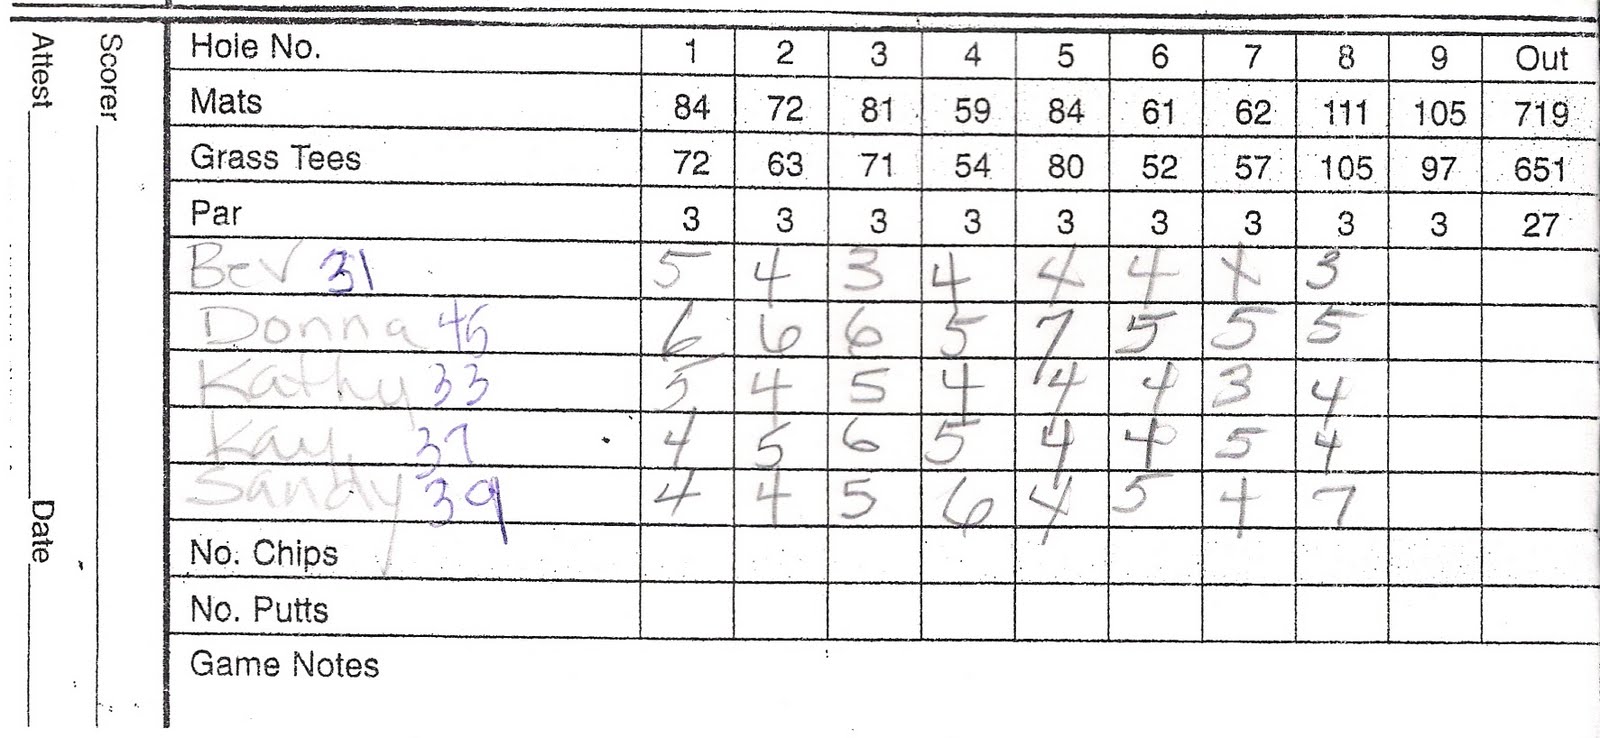 Hole No. 1 2 3 4 5 6 7 8 9 Out
Mats 84 72 81 59 84 61 62 111 105 719
Grass Tees 72 63 71 54 80 52 57 105 97 651
Par 3 3 3 3 3 3 3 3 3 27
Bev 31 5 4 3 4 4 4 4 3
Donna 45 6 6 6 5 7 5 5 5
Kathy 33 5 4 5 4 4 4 3 4
Kay 37 4 5 6 5 4 4 5 4
Sandy 39 4 4 5 6 4 5 4 7
No. Chips
No. Putts
Game Notes
Scorer
Attest Date